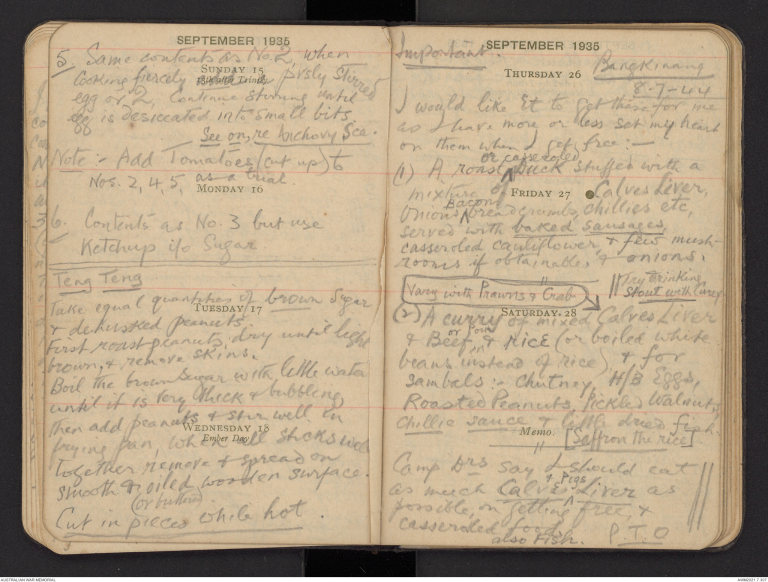 SEPTEMBER 1935
5, Same contents as No. 2, when
SUNDAY 15
cooking fiercely prsly stirred
egg or 2, Continue stirring until
egg is desiccated into small bits
See on, re Anchovy Sce.
Note :- Add Tomatoes (cut up) to
Nos. 2, 4, 5, as a trial.
MONDAY 16
6. Contents as No. 3 but use
Ketchup i/o Sugar
Teng Teng
Take equal quantities of brown Sugar
TUESDAY 17
& dehusked peanuts.
First roast peanuts dry until light
brown, & remove skins.
Boil the brown sugar with little water
until it is very thick & bubbling
then add peanuts & stir well in
WEDNESDAY 18
Ember Day
frying pan, when all sticks well
together remove & spread on
smooth & oiled wooden surface.
(or buttered)
Cut in pieces while hot.
SEPTEMBER 1935
Important.
THURSDAY 26
Bangkinang
8-7-44
I would like Et to get these for me
as I have more or less set my heart
on them when I get free:-
or casseroled
(1) A roast Duck stuffed with a
FRIDAY 27
mixture of Calves Liver,
Bacon
onions breadcrumbs, chillies etc,
served with baked sausages,
casseroled cauliflower & few mush-
rooms if obtainable, & onions.
Vary with Prawns & Crab
Try drinking
stout with Curry
SATURDAY 28
(2) A curry of mixed Calves Liver
or fowl
& Beef & RICE (or boiled white
beans instead of rice), & for
sambals :- Chutney, H/B Eggs,
Roasted Peanuts, Pickled Walnuts,
chillie sauce & little dried fish.
MEMO.
[saffron the rice]
Camp Drs say I should eat
& Pigs
as much Calves Liver as
possible, on getting free, &
casseroled foods,
also Fish.
P.T.O
AUSTRALIAN WAR MEMORIAL